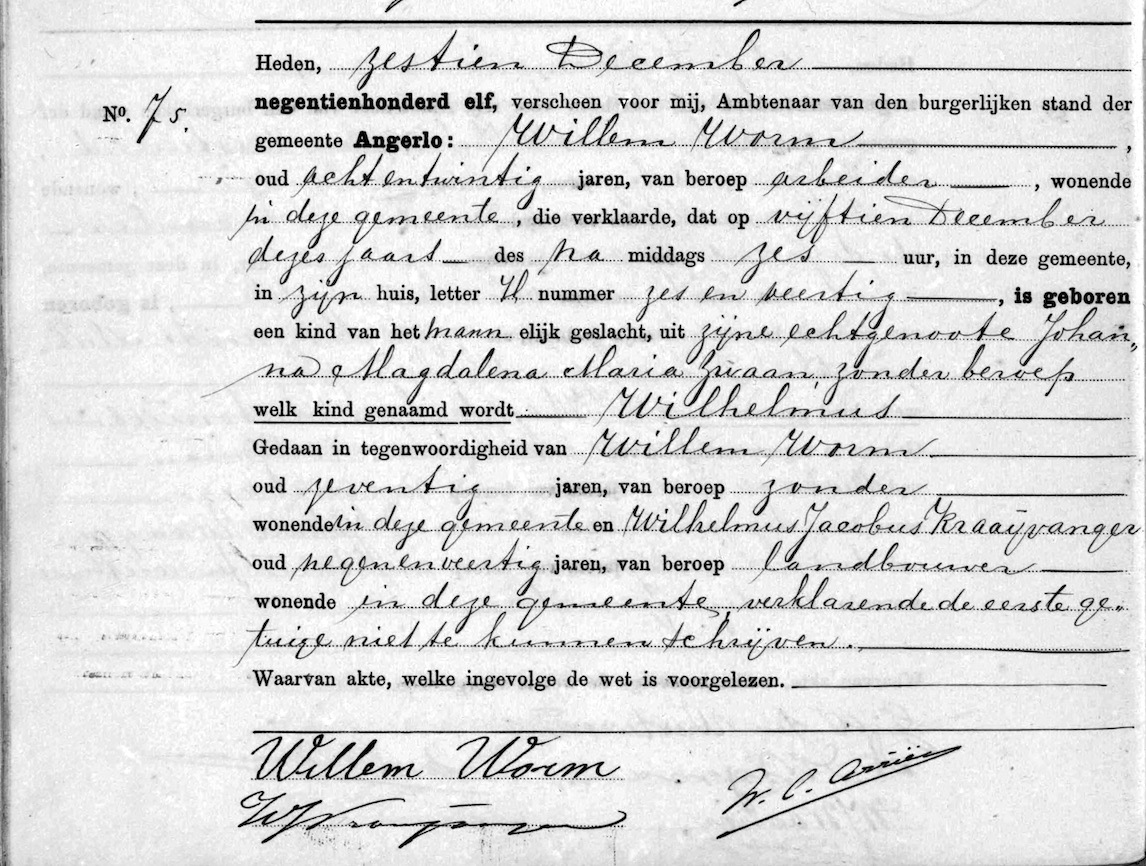 Heden, zestien December
No. 75. negentienhonderd elf, verscheen voor mij, Ambtenaar van den burgerlijken stand der
gemeente Angerlo: Willem Worm,
oud achtentwintig jaren, van beroep arbeider, wonende
in deze gemeente, die verklaarde, dat op vijftien December
dezes jaars des na middags zes uur, in deze gemeente,
in zijn huis, letter H nummer zes en veertig, is geboren
een kind van het mann elijk geslacht, uit zijne echtgenoote Johan„
na Magdalena Maria Zwaan, zonder beroep
welk kind genaamd wordt Wilhelmus
Gedaan in tegenwoordigheid van Willem Worm
oud zeventig jaren, van beroep zonder
wonende in deze gemeente en Wilhelmus Jacobus Kraaijvanger
oud negenenveertig jaren, van beroep landbouwer
wonende in deze gemeente, verklarende de eerste ge„
tuige niet te kunnen schrijven.
Waarvan akte, welke ingevolge de wet is voorgelezen.
Willem Worm